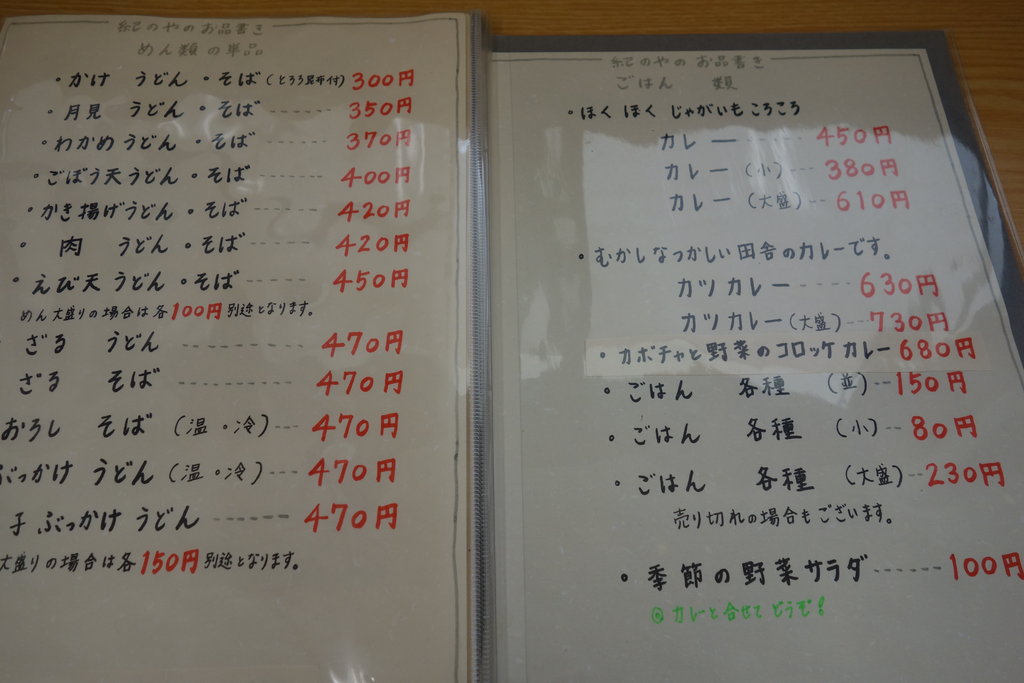 紀のやのお品書き
めん類の単品
・かけ うどん・そば(とろろ昆布付) 300円
・月見 うどん・そば 350円
・わかめうどん・そば 370円
・ごぼう天うどん・そば 400円
・かき揚げうどん・そば 420円
・肉 うどん・そば 420円
・えび天うどん・そば 450円
めん大盛りの場合は各100円別途となります。
ざる うどん 470円
ざる そば 470円
おろし そば (温・冷) 470円
ぶっかけ うどん (温・冷) 470円
ぶっかけ うどん 470円
大盛りの場合は各150円別途となります。
紀のやのお品書き
ごはん 類
・ほくほくじゃがいもころころ
カレー 450円
カレー (小) 380円
カレー (大盛) 610円
・むかしなつかしい田舎のカレーです。
カツカレー 630円
カツカレー(大盛) 730円
・カボチャと野菜のコロッケカレー680円
・ごはん 各種 (並) 150円
・ごはん 各種 (小) 80円
・ごはん 各種 (大盛) 230円
売り切れの場合もございます。
・季節の野菜サラダ 100円
◎カレーと合せてどうぞ!